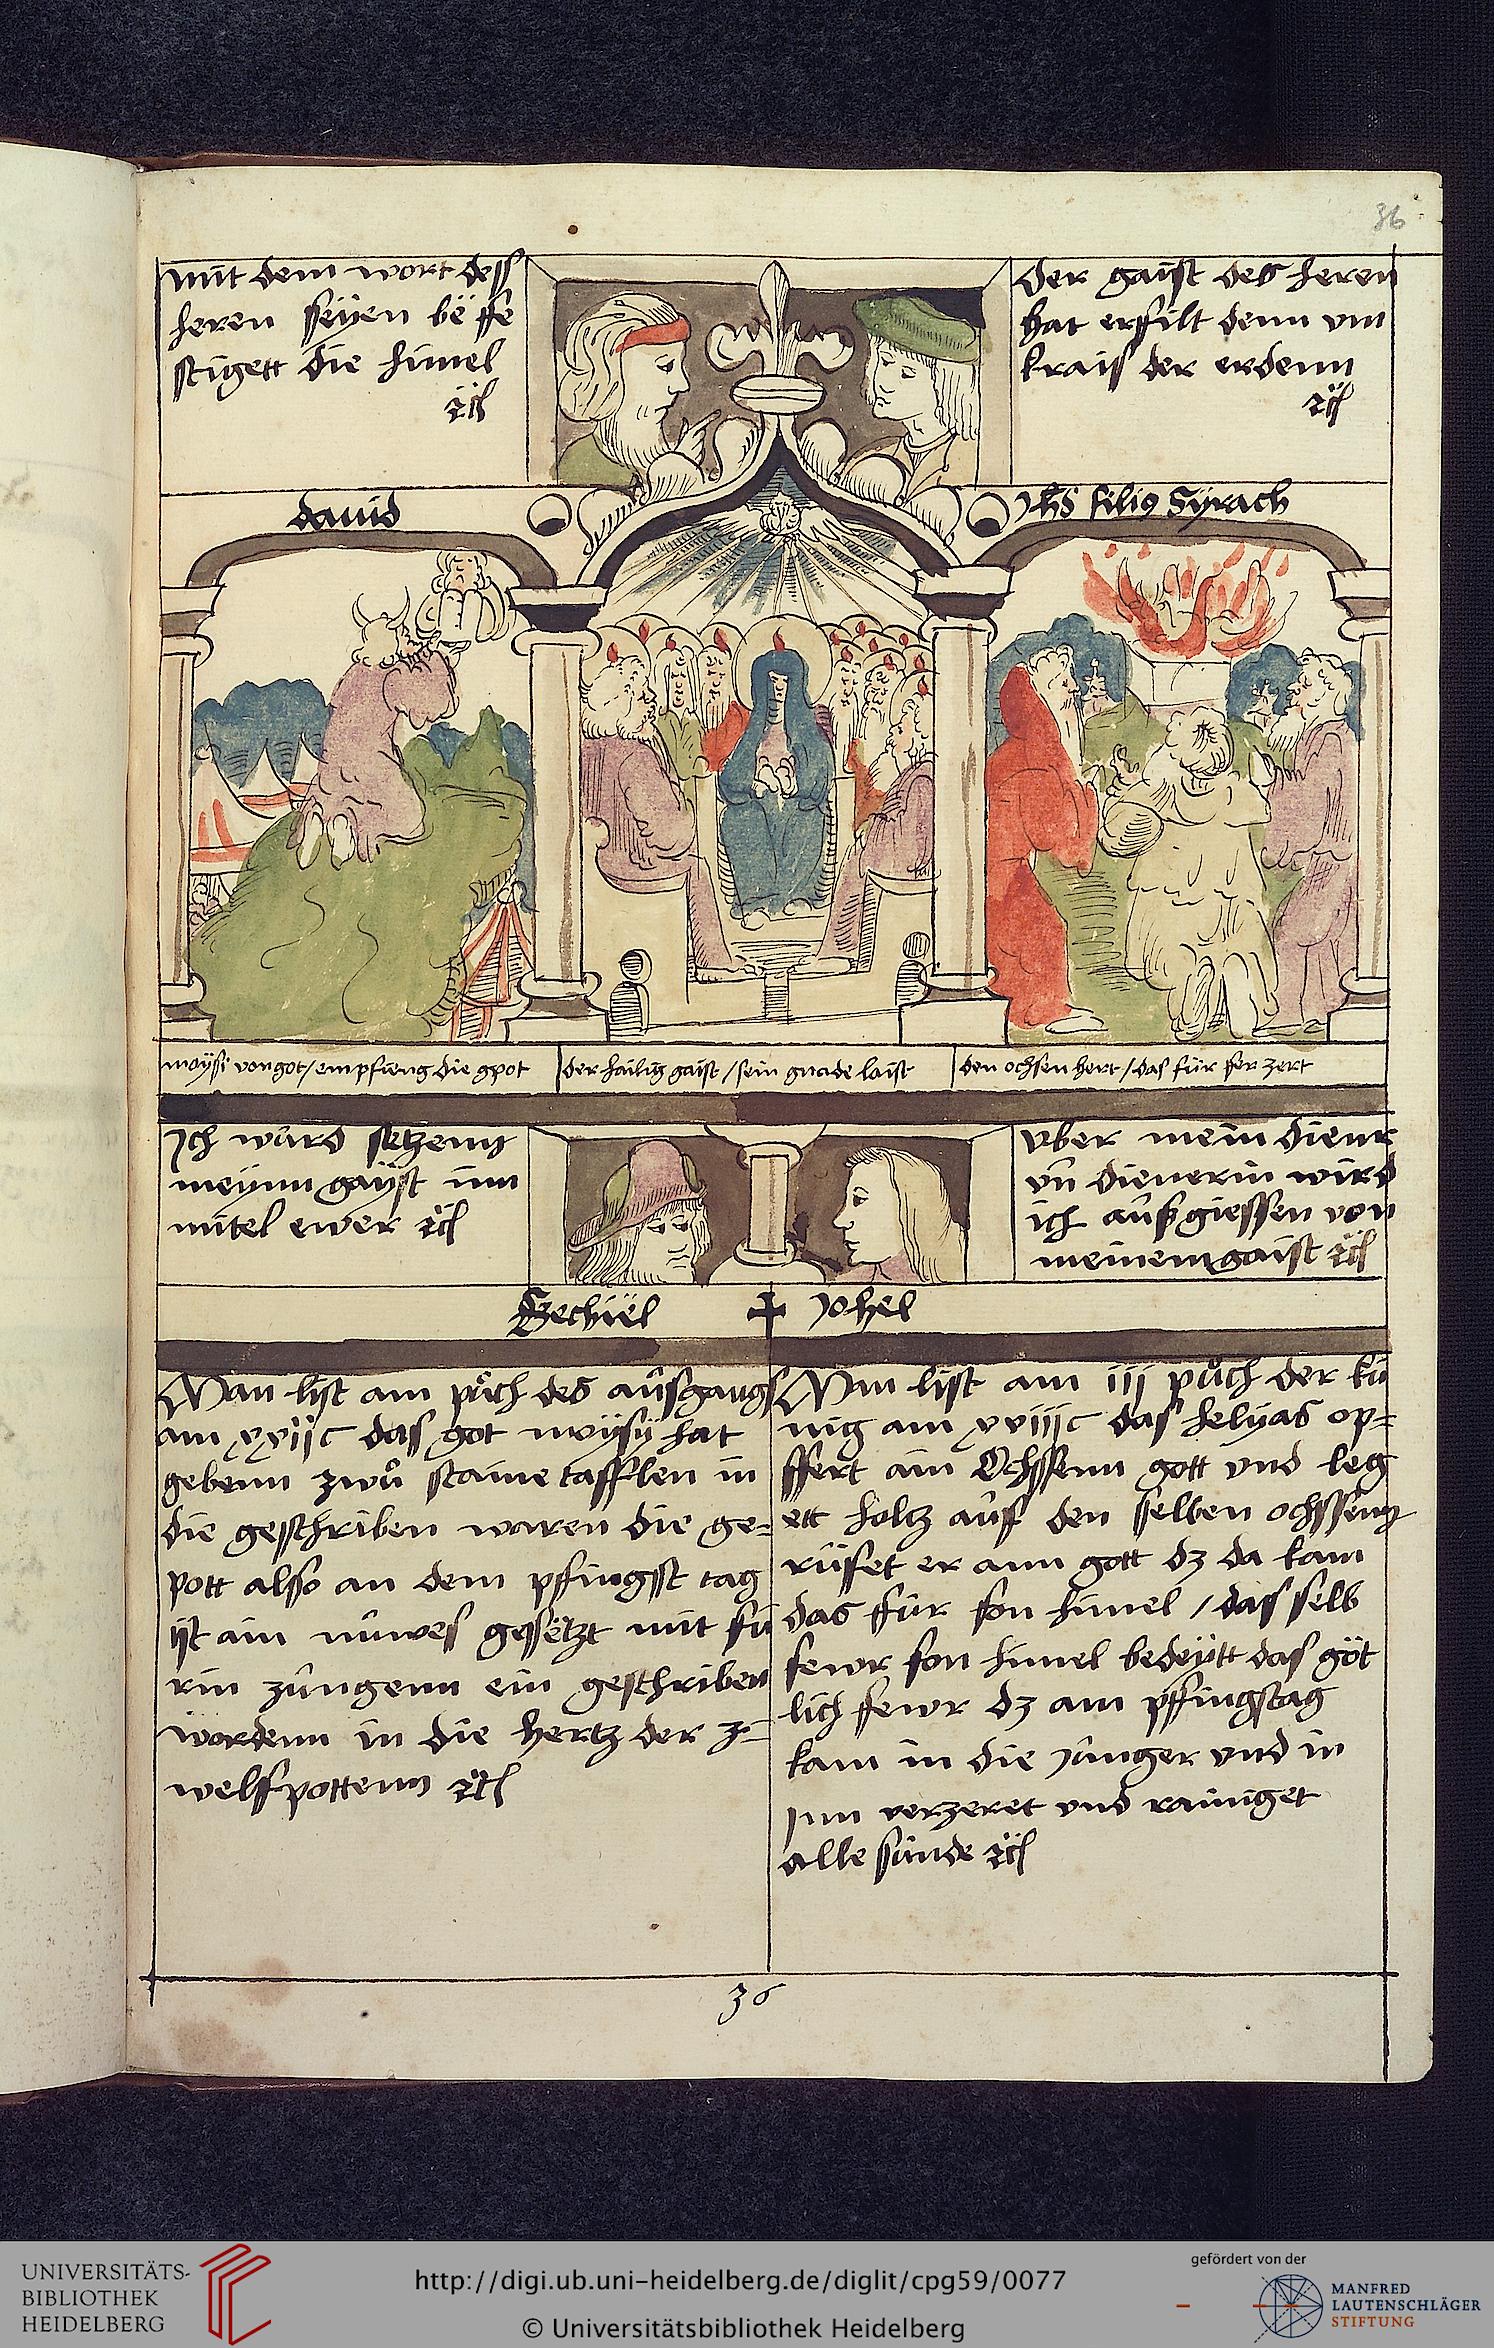 36
mit dem wort dess
heren seyen bëffe
stigett die himel
ꝛc
Der gaist des heren
hat erfilt denn vm
krais der erdenn
ꝛc
dauid
Jhs filiꝯ Syrach
moysi von got / empfieng die gpot
der hailig gaist / sein gnade laist
den ochsen hert / das für fer zert
Ich würd setzenn
meynn gayst im
mitel ewer ꝛc
vber mein dienr
vn̄ dienerin wird
ich aûßgiessen von
meinem gaist ꝛc
Ezechiël
Johel
Man list am půch des aûsgangs
am
das got moysy hat
gebenn zwů staine tafflen in
die geschriben waren die ge-
pott also an dem pfingst tag
ist ain nûwes gesëtzt mit fü
rin zûngenn ein geschriben
wordenn in die hertz der z-
welfpottenn ꝛc
Man list am iij půch der kü
nig am xviijc das helyas op-
ffert ain Ochssenn gott vnd leg
ett holtz aûf den selben ochssenn
rûfet er ann gott dz da kam
das für fon himel / das selb
fewr fon himel bedeytt das göt
lich fewr dz am pfingstag
kam in die Jûnger vnd in
Jnn verzeret vnd rainiget
alle sünde ꝛc
36
UNIVERSITÄTS-
BIBLIOTHEK
HEIDELBERG
http://digi.ub.uni-heidelberg.de/diglit/cpg59/0077
© Universitätsbibliothek Heidelberg
gefördert von der
MANFRED
LAUTENSCHLÄGER
STIFTUNG